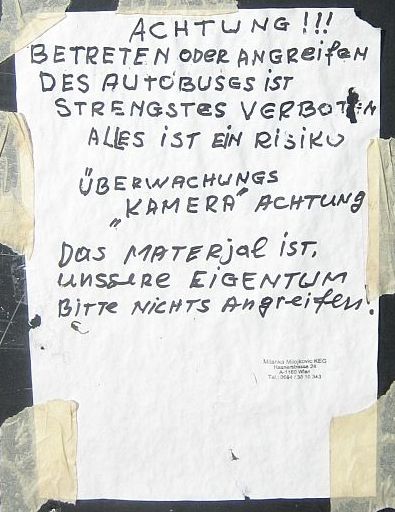 ACHTUNG!!!
BETRETEN ODER ANGREifEN
DES AUTOBUSES iST
STRENGSTES VERBOTEN
ALLES iST EiN RiSiKO
ÜBERWACHUNGS
„KAMERA" ACHTUNG
Das MATERjal iST,
unssere EiGENTUM
BiTTE NiCHTS Angreifen!
Milanka Milojkovic KEG
A-1160 Wien